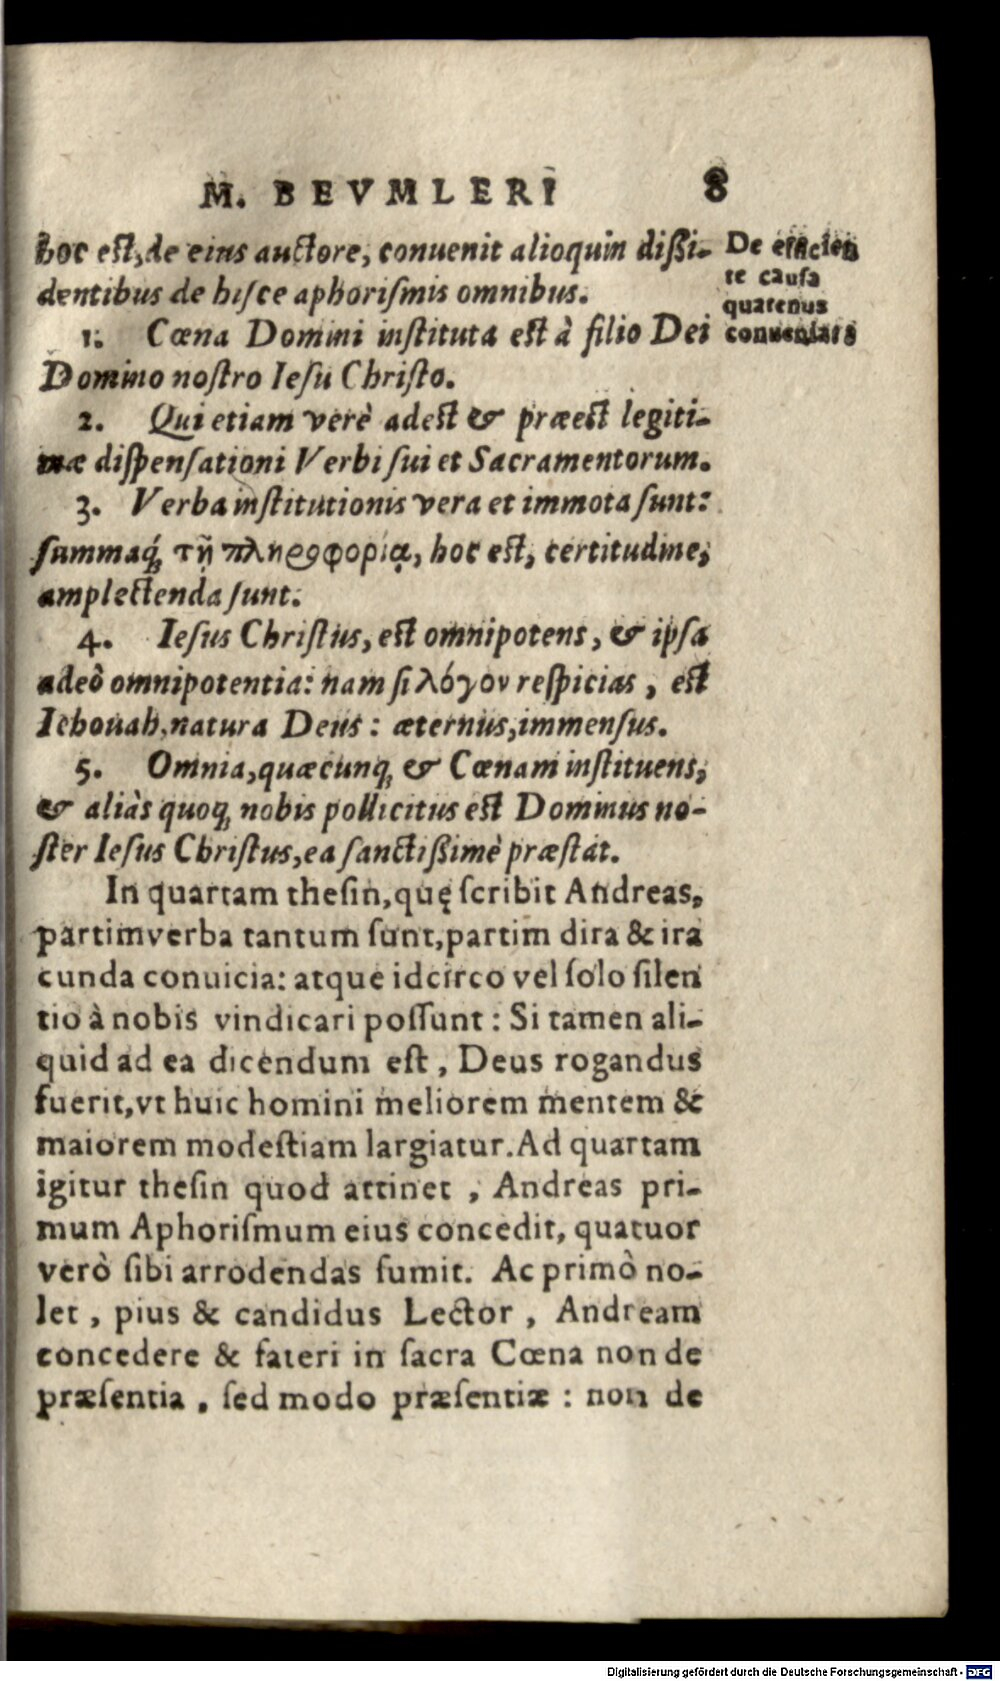 M. BEVMLERI 8
hoc est, de eius auctore, conuenit alioquin dißi-
dentibus de hisce aphorismis omnibus.
De efficien
te causa
quatenus
conueniats
1. Cœna Domini instituta est à filio Dei
Domino nostro Iesu Christo.
2. Qui etiam verè adest & præest legiti-
mæ dispensationi Verbi sui et Sacramentorum.
3. Verba institutionis vera et immota sunt:
summaq́; τῇ πληροφορίᾳ, hoc est, certitudine,
amplectenda sunt.
4. Iesus Christus, est omnipotens, & ipsa
adeò omnipotentia: nam si λόγον respicias, est
Iehouah, natura Deus: æternus, immensus.
5. Omnia, quæcunq; & Cœnam instituens,
& aliàs quoq; nobis pollicitus est Dominus no-
ster Iesus Christus, ea sanctißimè præstat.
In quartam thesin, quę scribit Andreas,
partim verba tantum sunt, partim dira & ira
cunda conuicia: atque idcirco vel solo silen
tio à nobis vindicari possunt: Si tamen ali-
quid ad ea dicendum est, Deus rogandus
fuerit, vt huic homini meliorem mentem &
maiorem modestiam largiatur. Ad quartam
igitur thesin quod attinet, Andreas pri-
mum Aphorismum eius concedit, quatuor
verò sibi arrodendas sumit. Ac primò no-
let, pius & candidus Lector, Andream
concedere & fateri in sacra Cœna non de
præsentia, sed modo præsentiæ: non de
Digitalisierung gefördert durch die Deutsche Forschungsgemeinschaft - DFG